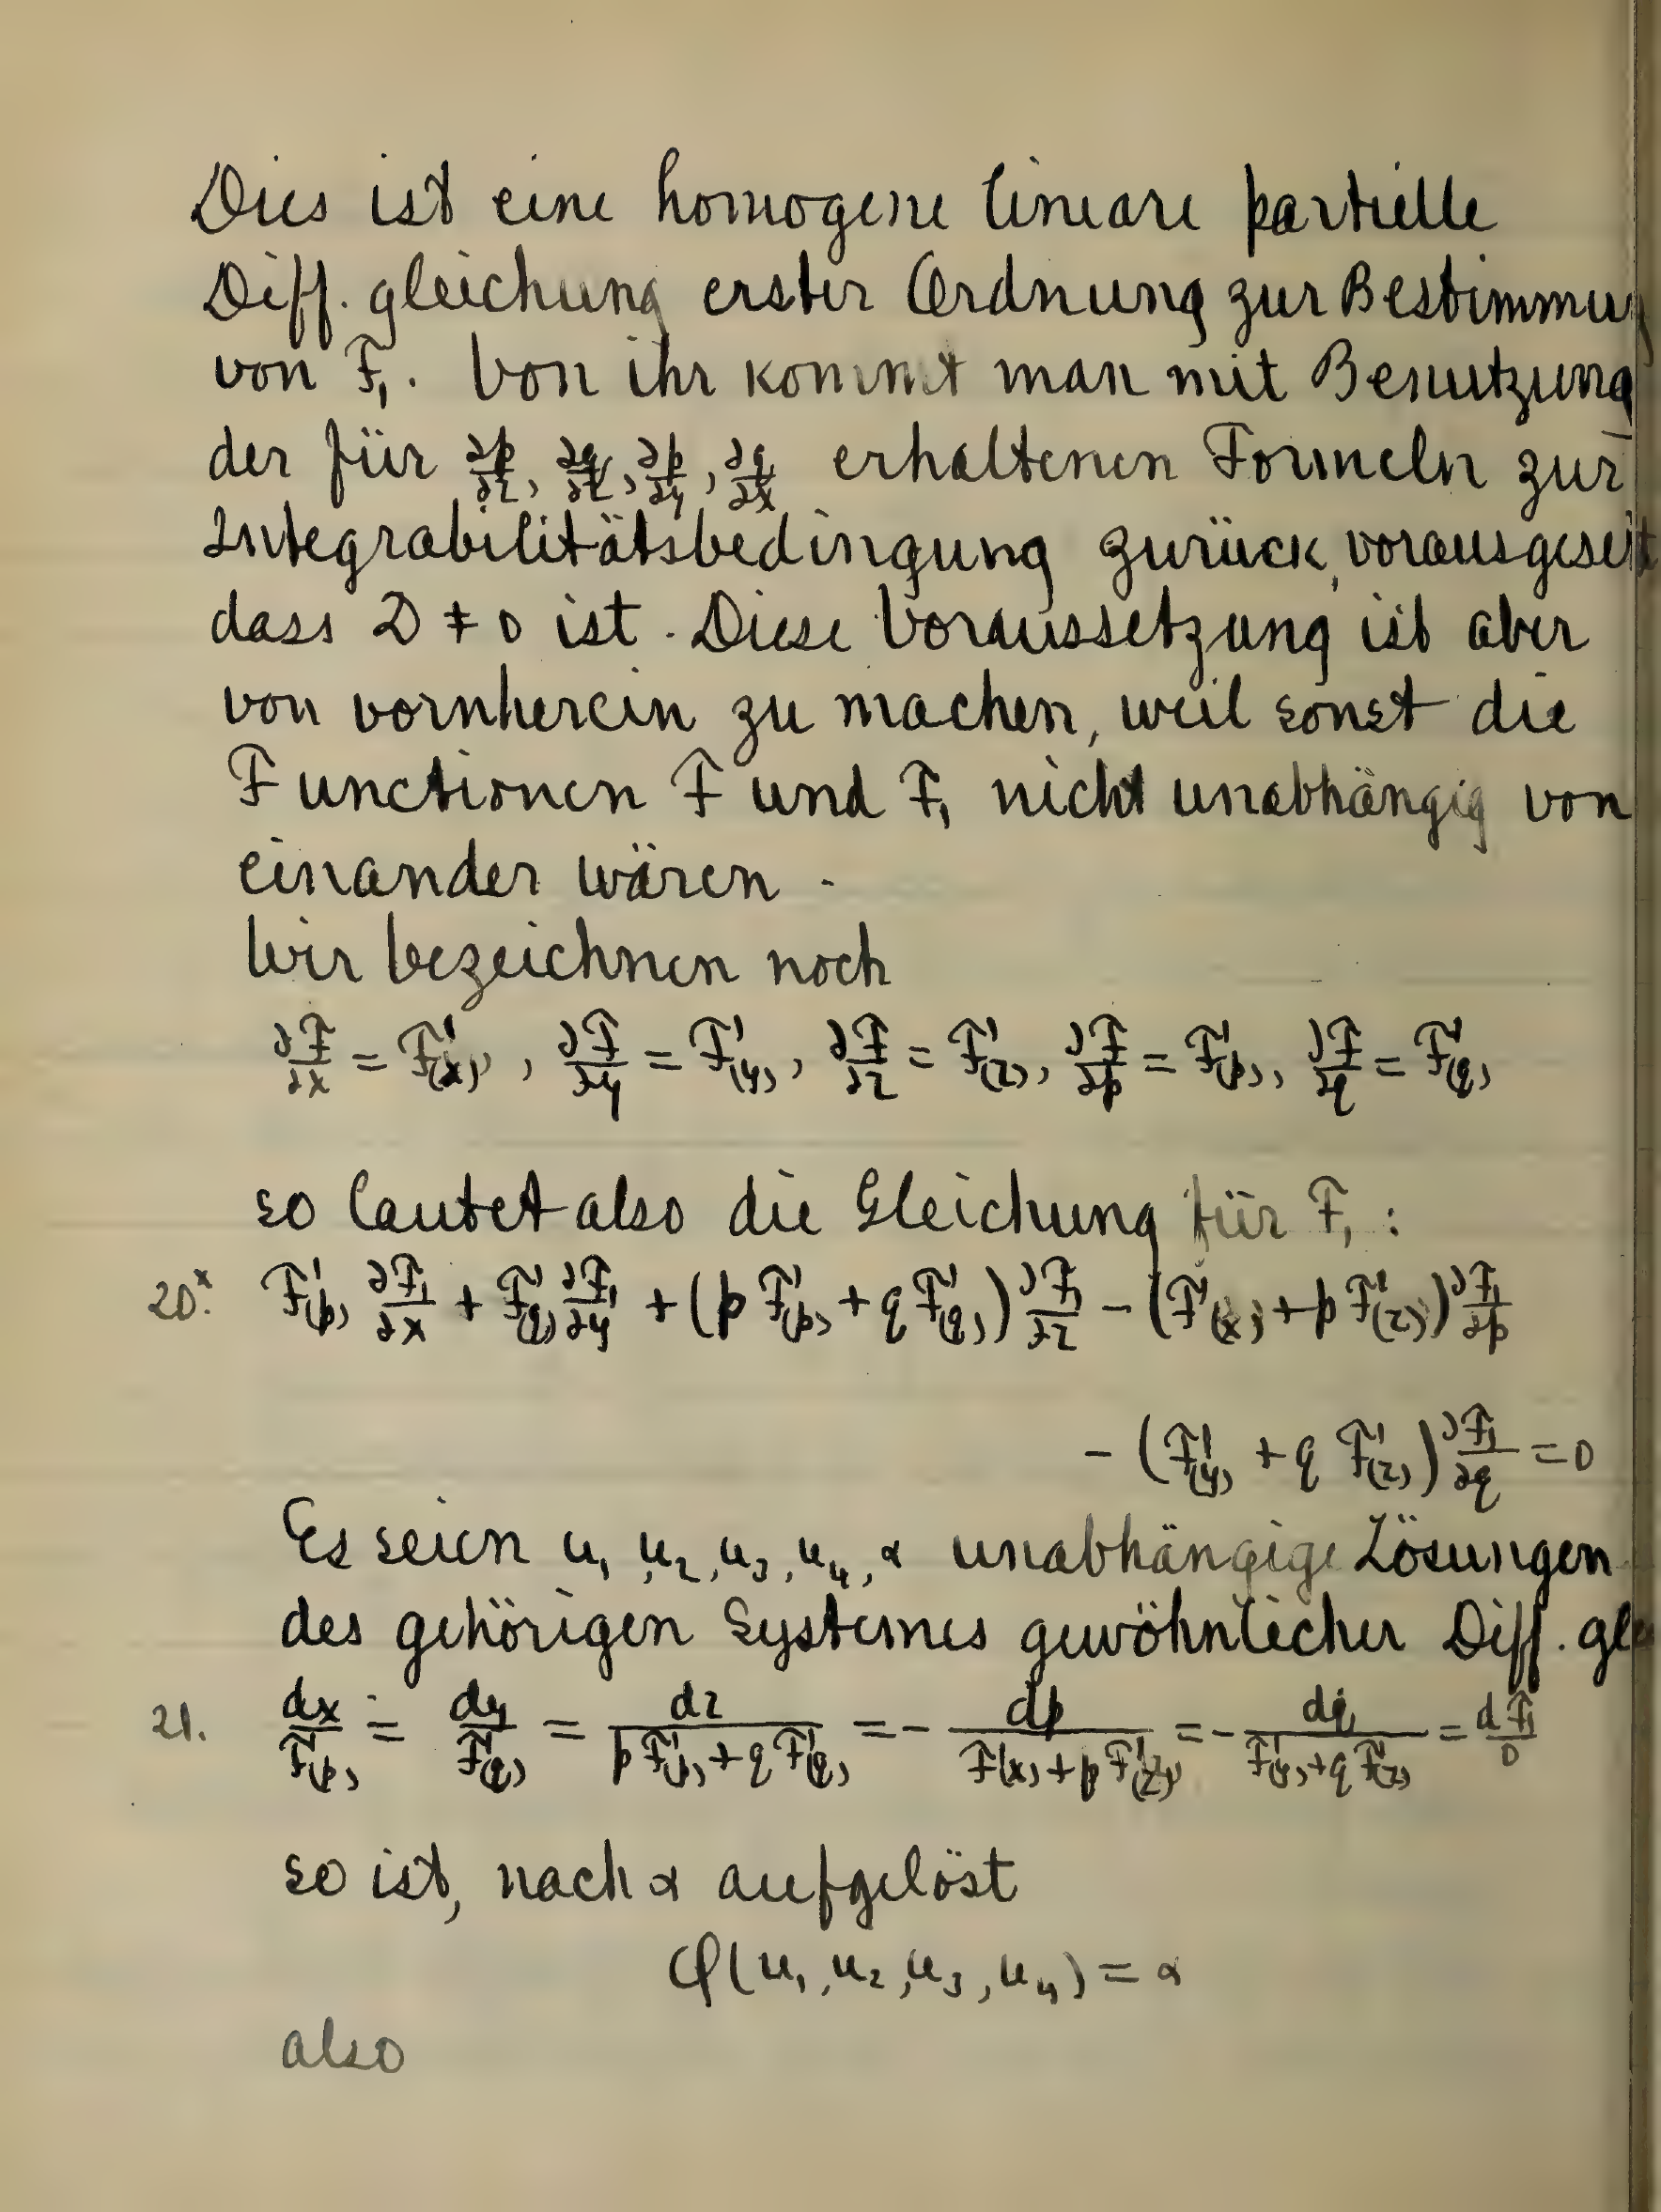 Dies ist eine homogene lineare partielle
Diff. gleichung erster Ordnung zur Bestimmung
von F₁. Von ihr kommt man mit Benutzung
der für ∂p/∂z, ∂q/∂z, ∂p/∂y, ∂q/∂x erhaltenen Formeln zur
Integrabilitätsbedingung zurück, vorausgesetzt
dass D ≠ 0 ist. Diese Voraussetzung ist aber
von vornherein zu machen, weil sonst die
Functionen F und F₁ nicht unabhängig von
einander wären.
Wir bezeichnen noch
∂F/∂x = F'(x), ∂F/∂y = F'(y), ∂F/∂z = F'(z), ∂F/∂p = F'(p), ∂F/∂q = F'(q)
so lautet also die Gleichung für F₁:
20.ˣ F'(p) ∂F₁/∂x + F'(q) ∂F₁/∂y + (p F'(p) + q F'(q)) ∂F₁/∂z − (F'(x) + p F'(z)) ∂F₁/∂p
− (F'(y) + q F'(z)) ∂F₁/∂q = 0
Es seien u₁, u₂, u₃, u₄, α unabhängige Lösungen
des gehörigen Systemes gewöhnlicher Diff. gle
21. dx/F'(p) = dy/F'(q) = dz/(p F'(p) + q F'(q)) = − dp/(F'(x) + p F'(z)) = − dq/(F'(y) + q F'(z)) = dF₁/0
so ist, nach α aufgelöst
φ(u₁, u₂, u₃, u₄) = α
also